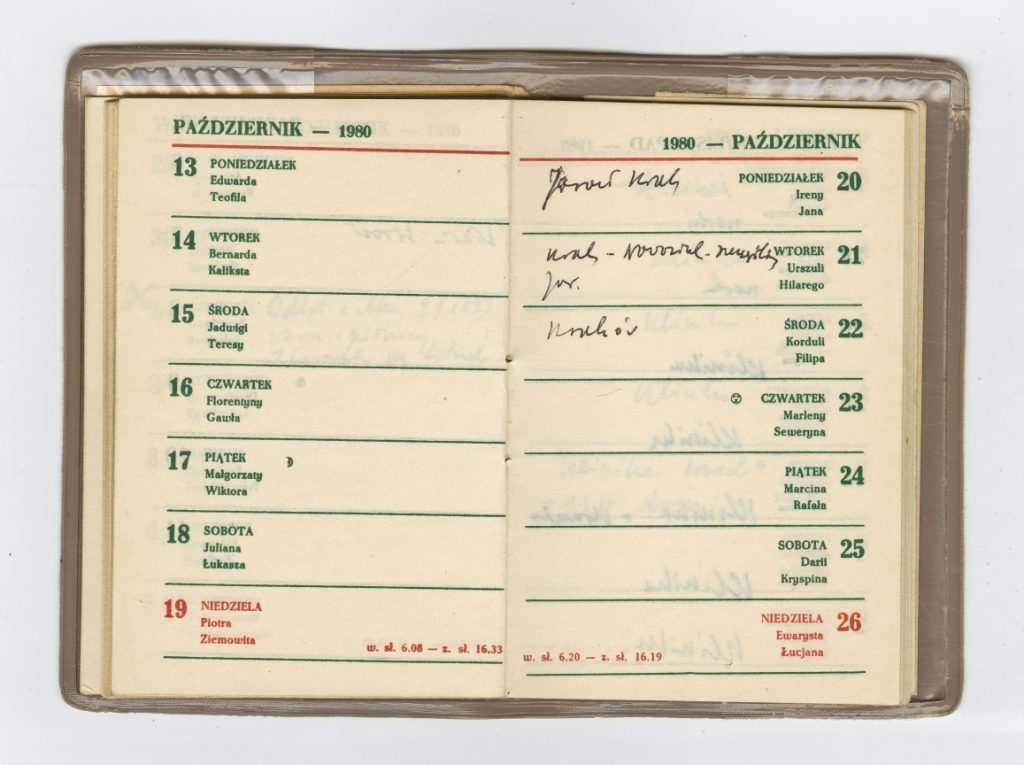 PAŹDZIERNIK — 1980
13 PONIEDZIAŁEK
Edwarda
Teofila
14 WTOREK
Bernarda
Kaliksta
15 ŚRODA
Jadwigi
Teresy
16 CZWARTEK
Florentyny
Gawła
17 PIĄTEK
Małgorzaty
Wiktora
18 SOBOTA
Juliana
Łukasza
19 NIEDZIELA
Piotra
Ziemowita
w. sł. 6.08 — z. sł. 16.33
1980 — PAŹDZIERNIK
PONIEDZIAŁEK 20
Ireny
Jana
WTOREK 21
Urszuli
Hilarego
Kraków
ŚRODA 22
Korduli
Filipa
CZWARTEK 23
Marleny
Seweryna
PIĄTEK 24
Marcina
Rafała
SOBOTA 25
Darii
Kryspina
NIEDZIELA 26
Ewarysta
Łucjana
w. sł. 6.20 — z. sł. 16.19